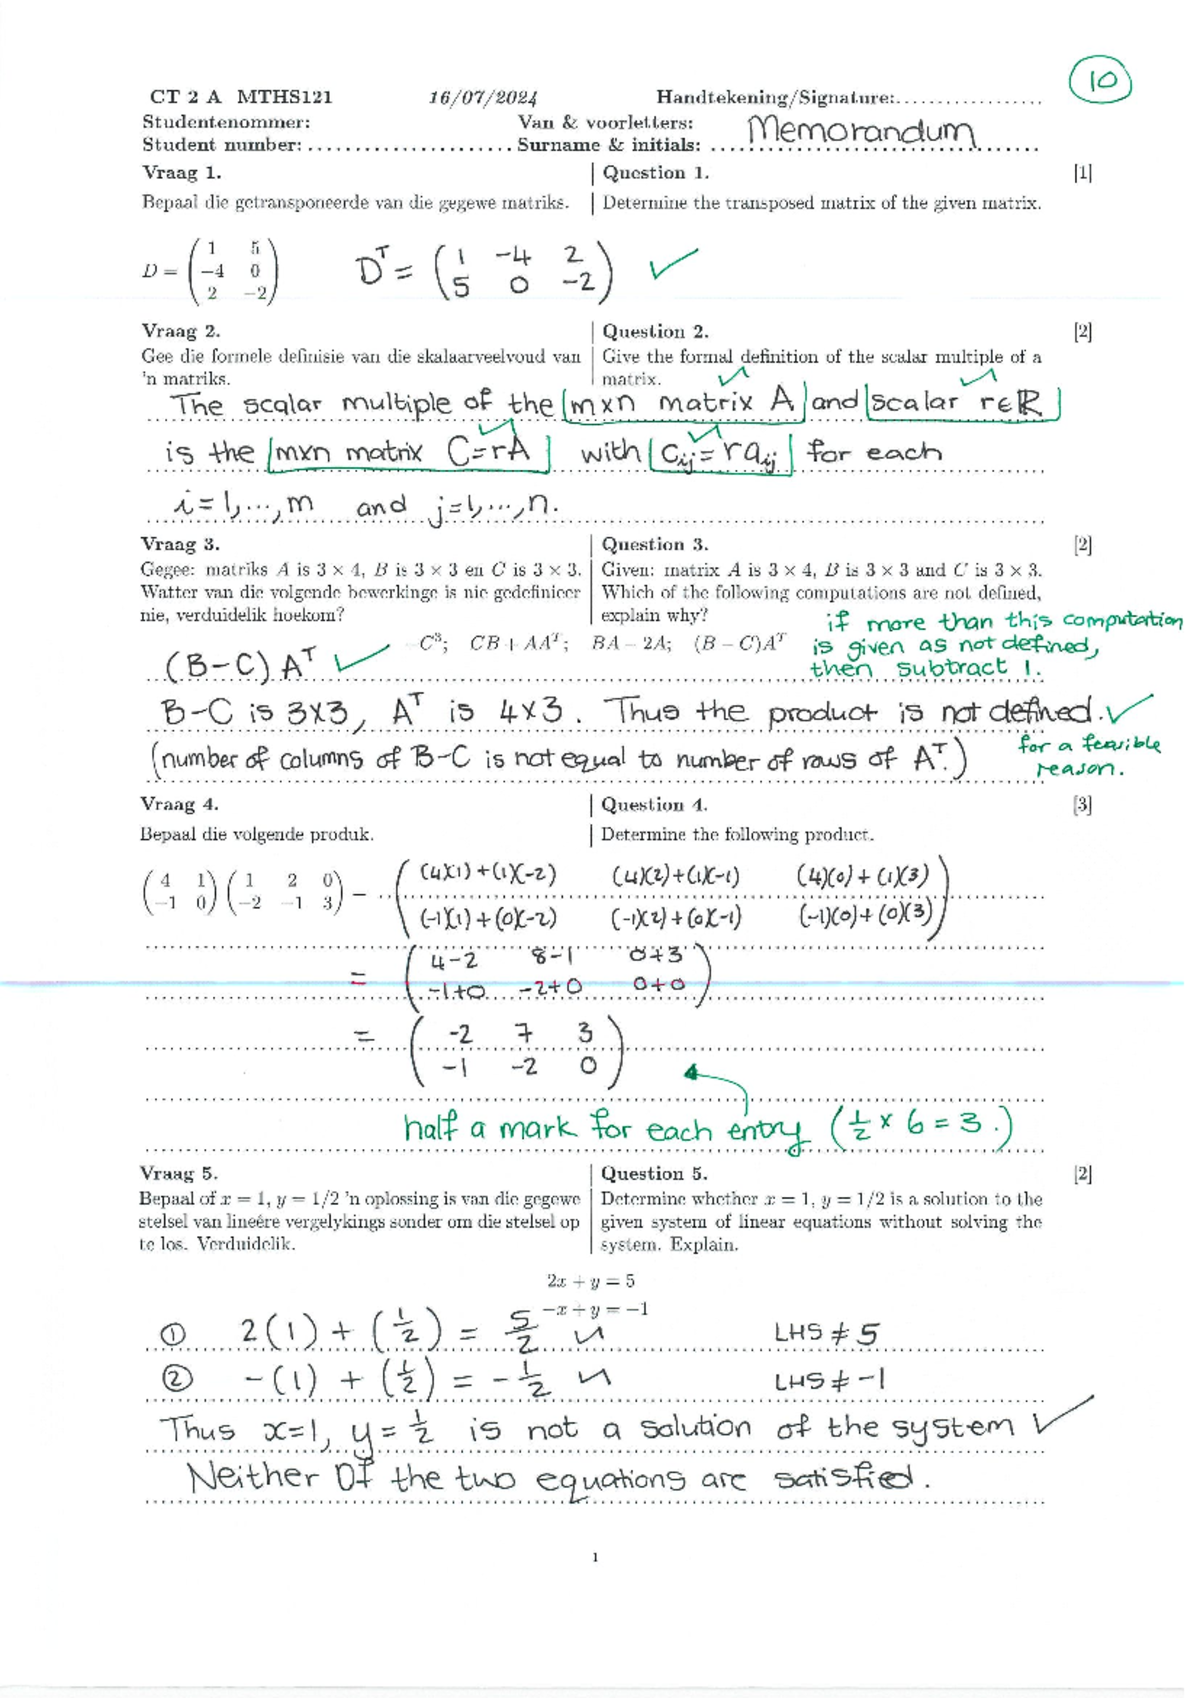 10
CT 2 A MTHS121 16/07/2024 Handtekening/Signature:..................
Studentenommer: Van & voorletters:
Student number: ..................... Surname & initials: .... Memorandum .......
Vraag 1. | Question 1. [1]
Bepaal die getransponeerde van die gegewe matriks. | Determine the transposed matrix of the given matrix.
D = ( 1 5 ; −4 0 ; 2 −2 ) Dᵀ = ( 1 −4 2 ; 5 0 −2 ) ✓
Vraag 2. | Question 2. [2]
Gee die formele definisie van die skalaarveelvoud van | Give the formal definition of the scalar multiple of a
'n matriks. | matrix.
The scalar multiple of the |m×n matrix A| and |scalar r∈ℝ|
is the |m×n matrix C=rA| with |cᵢⱼ=raᵢⱼ| for each
i=1,...,m and j=1,...,n.
Vraag 3. | Question 3. [2]
Gegee: matriks A is 3 × 4, B is 3 × 3 en C is 3 × 3. | Given: matrix A is 3 × 4, B is 3 × 3 and C is 3 × 3.
Watter van die volgende bewerkinge is nie gedefinieer | Which of the following computations are not defined,
nie, verduidelik hoekom? | explain why?
if more than this computation
is given as not defined,
then subtract 1.
C³; CB + AAᵀ; BA − 2A; (B − C)Aᵀ
(B−C)Aᵀ ✓
B−C is 3×3, Aᵀ is 4×3. Thus the product is not defined. ✓
(number of columns of B−C is not equal to number of rows of Aᵀ.)
for a feasible
reason.
Vraag 4. | Question 4. [3]
Bepaal die volgende produk. | Determine the following product.
( 4 1 ; −1 0 ) ( 1 2 0 ; −2 −1 3 ) = ( (4)(1)+(1)(−2) (4)(2)+(1)(−1) (4)(0)+(1)(3) ;
(−1)(1)+(0)(−2) (−1)(2)+(0)(−1) (−1)(0)+(0)(3) )
= ( 4−2 8−1 0+3 ;
−1+0 −2+0 0+0 )
= ( -2 7 3 ;
−1 −2 0 )
half a mark for each entry (½ × 6 = 3.)
Vraag 5. | Question 5. [2]
Bepaal of x = 1, y = 1/2 'n oplossing is van die gegewe | Determine whether x = 1, y = 1/2 is a solution to the
stelsel van lineêre vergelykings sonder om die stelsel op | given system of linear equations without solving the
te los. Verduidelik. | system. Explain.
2x + y = 5
−x + y = −1
① 2(1) + (½) = 5/2 LHS ≠ 5
② −(1) + (½) = −½ LHS ≠ −1
Thus x=1, y=½ is not a solution of the system ✓
Neither of the two equations are satisfied.
1